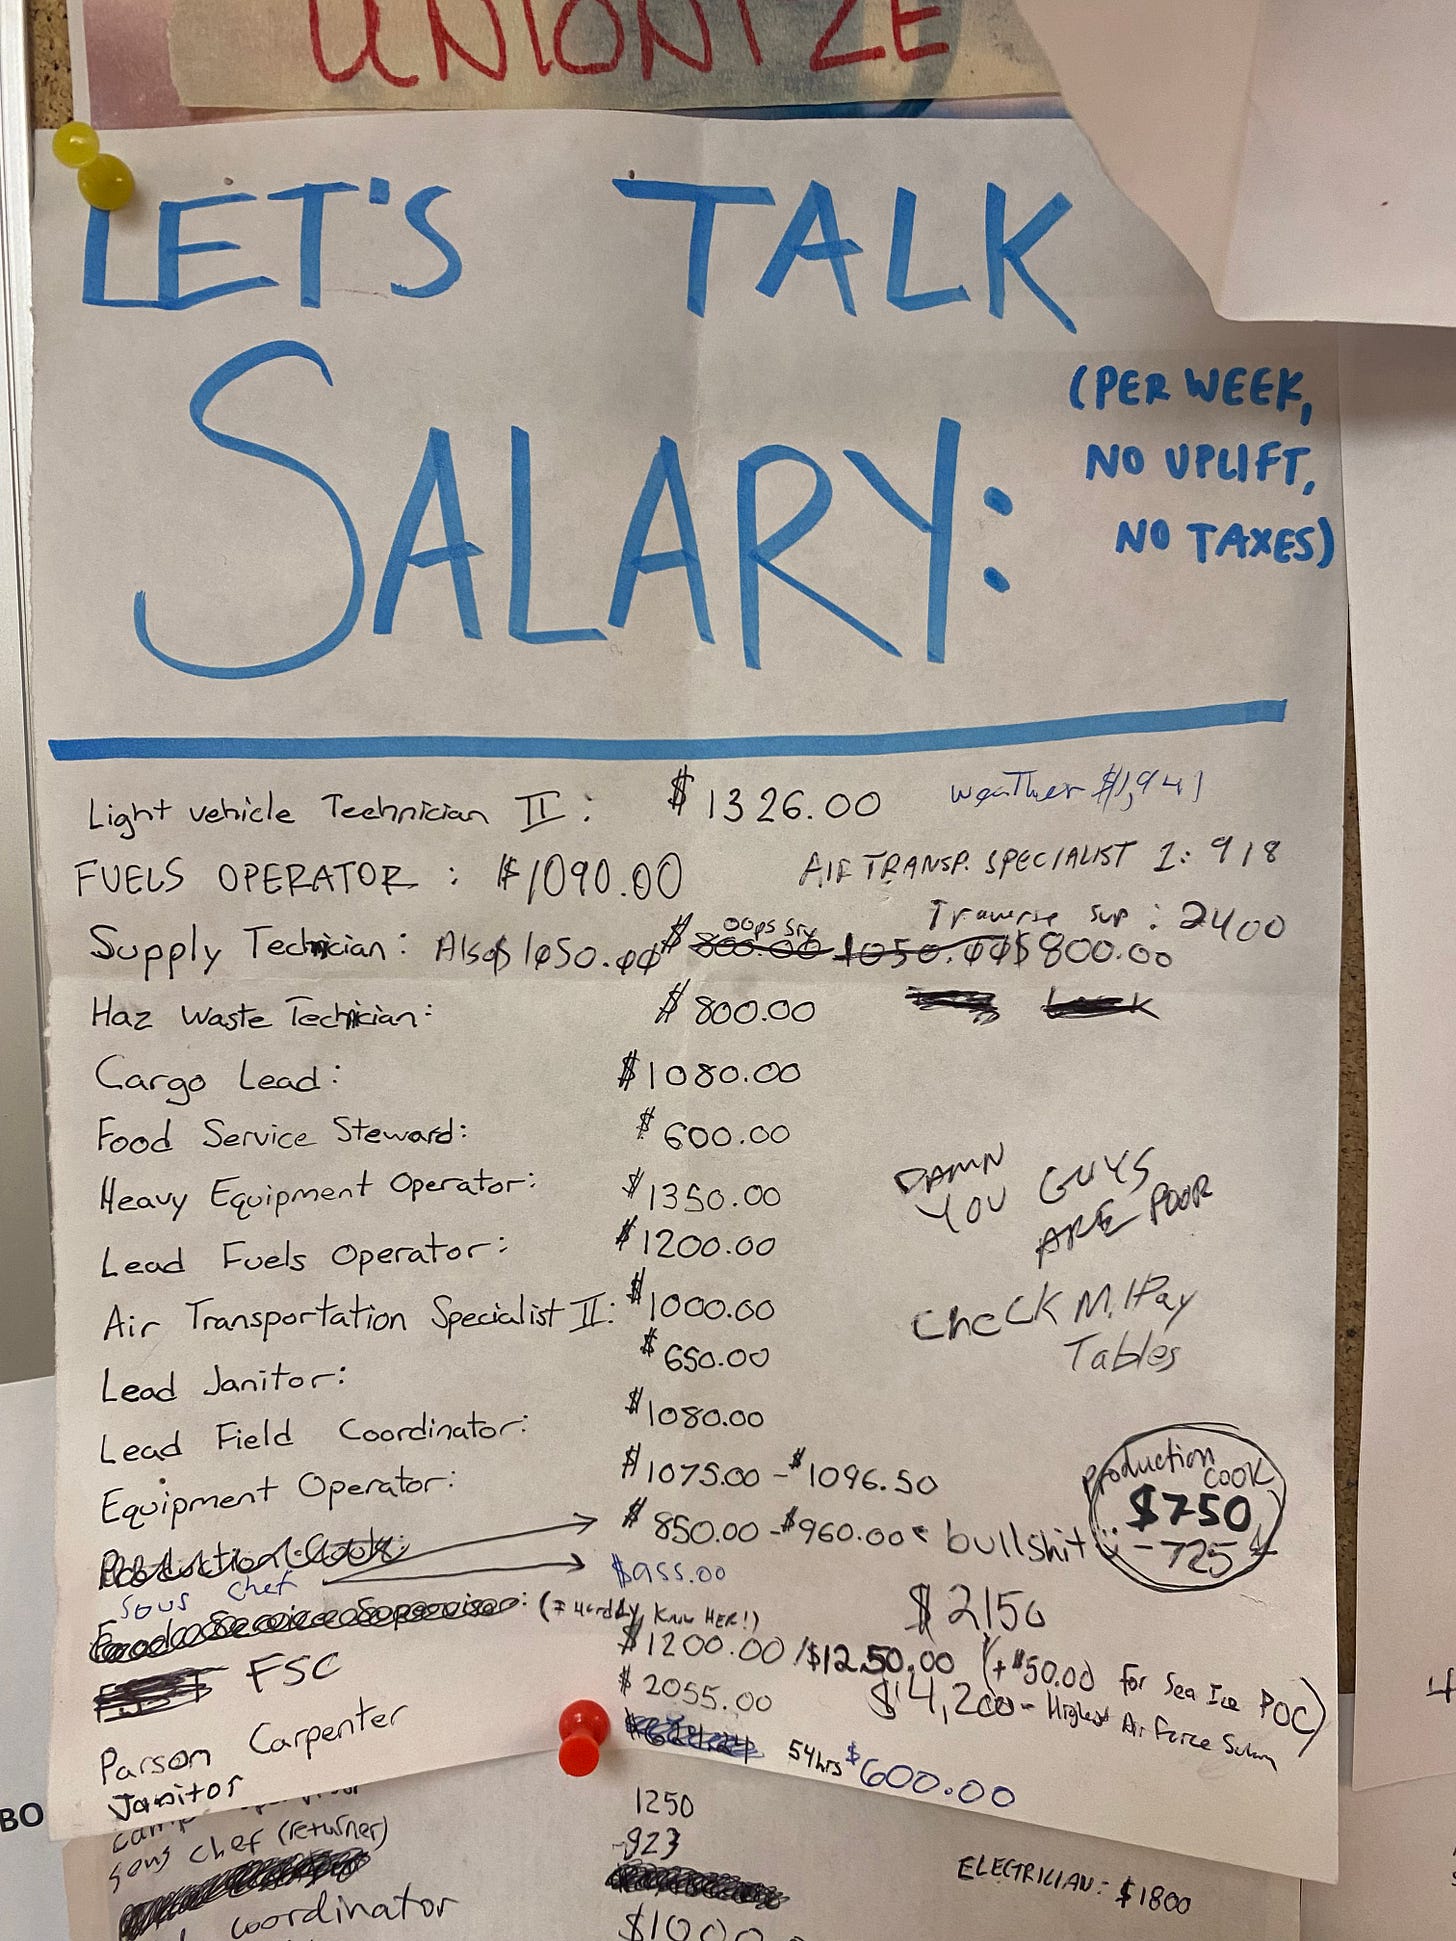 UNIONIZE
LET'S TALK
SALARY:
(PER WEEK,
NO UPLIFT,
NO TAXES)
Light vehicle Technician II: $1326.00
weather $1,941
FUELS OPERATOR: $1090.00
AIR TRANSP. SPECIALIST 1: 918
Traverse sup: 2400
Supply Technician: Also $1050.00 $ 800.00 oops sry 1050.00 $800.00
Haz Waste Technician: $800.00
Cargo Lead: $1080.00
Food Service Steward: $600.00
DAMN
YOU GUYS
ARE POOR
Heavy Equipment Operator: $1350.00
Lead Fuels Operator: $1200.00
Air Transportation Specialist II: $1000.00
CheCK Mil Pay
Tables
Lead Janitor: $650.00
Lead Field Coordinator: $1080.00
Equipment Operator: $1075.00 - $1096.50
Production Cook: $850.00 - $960.00 bullshit
Production
COOK
$750
-725
Sous Chef $955.00
Food Service Supervisor: (I HARDLY KNOW HER!)
$2150
FSC $1200.00 / $1250.00 (+$50.00 for Sea Ice POC)
Parson Carpenter $2055.00
$4,200 - Highest Air Force Salary
Janitor $621.24 54hrs $600.00
BO
1250
sous chef (returner) 923
ELECTRICIAN: $1800
coordinator $1000